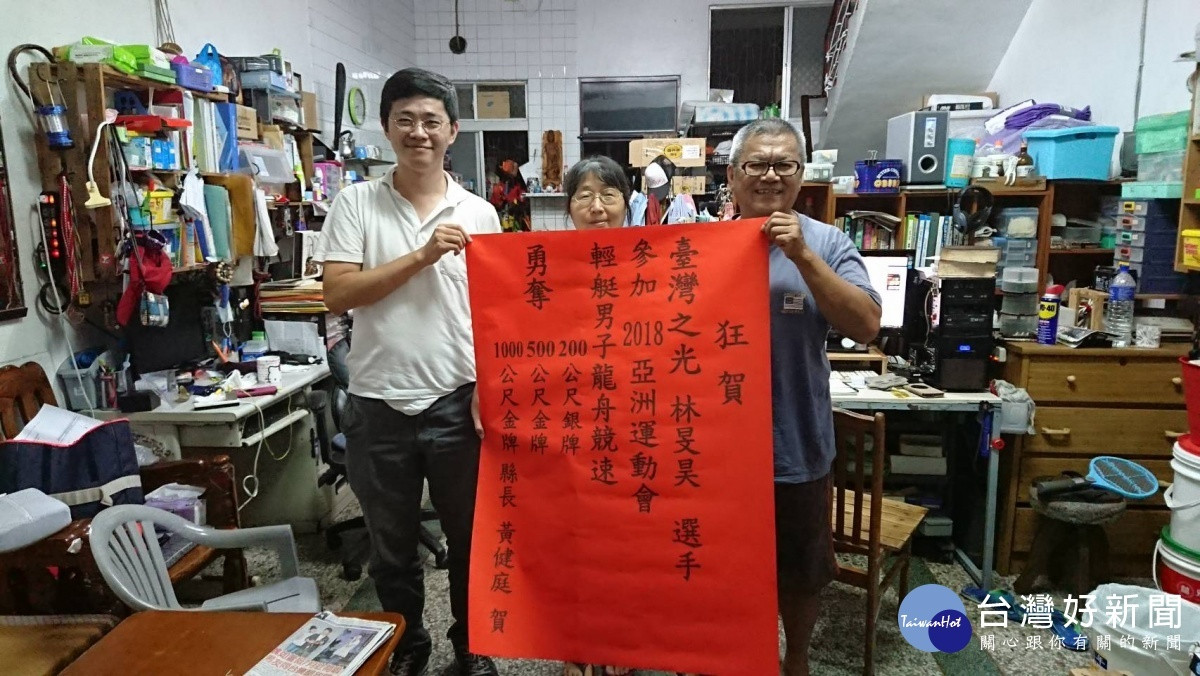 狂賀
臺灣之光 林旻昊 選手
參加 2018 亞洲運動會
輕艇男子龍舟競速
勇奪
200 公尺銀牌
500 公尺金牌
1000 公尺金牌
縣長 黃健庭 賀
WD-40
TaiwanHot
台灣好新聞
關心跟你有關的新聞